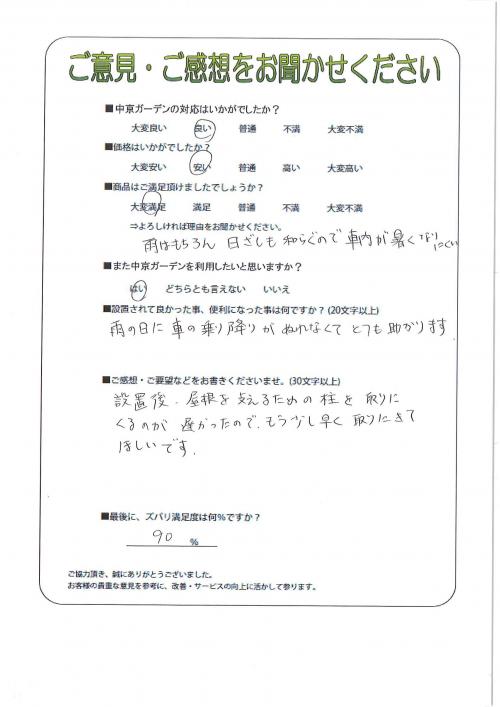 ご意見・ご感想をお聞かせください
■中京ガーデンの対応はいかがでしたか？
大変良い 良い 普通 不満 大変不満
■価格はいかがでしたか？
大変安い 安い 普通 高い 大変高い
■商品はご満足頂けましたでしょうか？
大変満足 満足 普通 不満 大変不満
⇒よろしければ理由をお聞かせください。
雨はもちろん 日ざしも和らぐので車内が暑くなりにくい
■また中京ガーデンを利用したいと思いますか？
はい どちらとも言えない いいえ
■設置されて良かった事、便利になった事は何ですか？(20文字以上)
雨の日に車の乗り降りがぬれなくてとても助かります
■ご感想・ご要望などをお書きくださいませ。(30文字以上)
設置後、屋根を支えるための柱を取りに
くるのが遅かったので、もう少し早く取りにきて
ほしいです。
■最後に、ズバリ満足度は何％ですか？
90 %
ご協力頂き、誠にありがとうございました。
お客様の貴重な意見を参考に、改善・サービスの向上に活かして参ります。